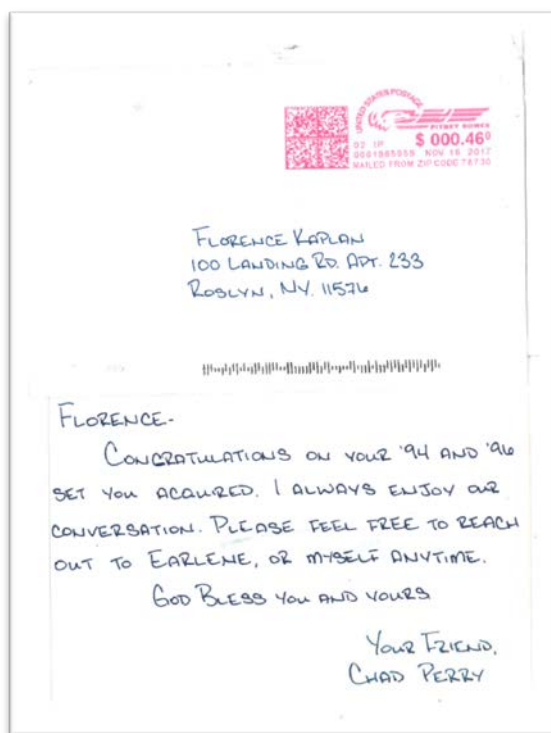 UNITED STATES POSTAGE
PITNEY BOWES
02 1P $ 000.46⁰
NOV 16 2017
MAILED FROM ZIP CODE 78730
FLORENCE KAPLAN
100 LANDING RD. APT. 233
ROSLYN, NY. 11576
FLORENCE-
CONGRATULATIONS ON YOUR '94 AND '96
SET YOU ACQUIRED. I ALWAYS ENJOY OUR
CONVERSATION. PLEASE FEEL FREE TO REACH
OUT TO EARLENE, OR MYSELF ANYTIME.
GOD BLESS YOU AND YOURS
YOUR FRIEND,
CHAD PERRY